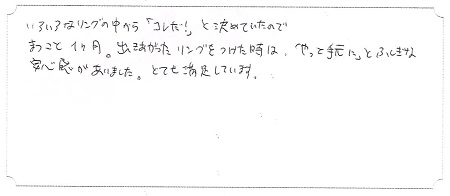 いろいろなリングの中から「コレだ!」と決めていたので
まつこと1ヶ月。出来あがったリングをつけた時は、やっと手元に、とふしぎな
安心感がありました。とても満足しています。